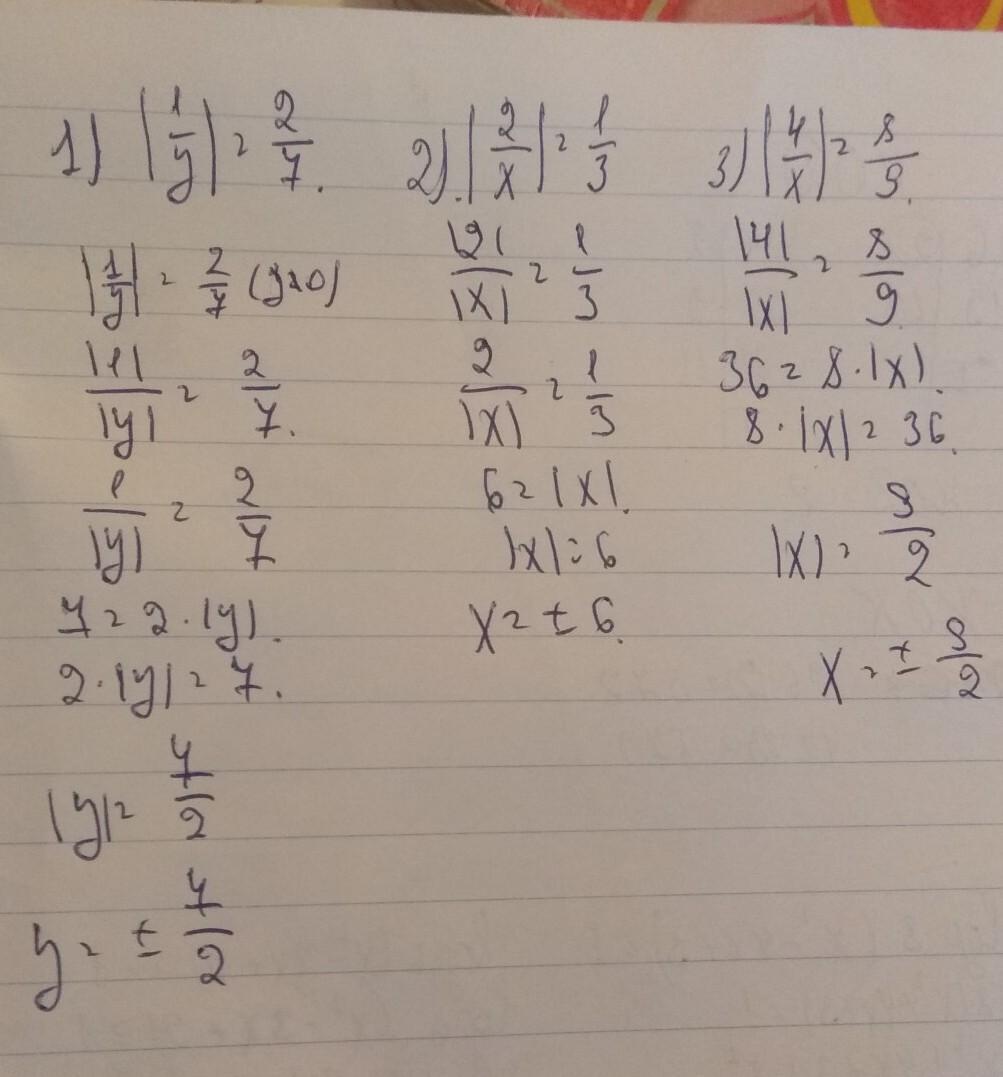 1) |1/y| = 2/7.
|1/y| = 2/7 (y≠0)
|1|/|y| = 2/7.
1/|y| = 2/7
7 = 2·|y|.
2·|y| = 7.
|y| = 7/2
y = ± 7/2
2). |2/x| = 1/3
|2|/|x| = 1/3
2/|x| = 1/3
6 = |x|.
|x| = 6
x = ± 6.
3) |4/x| = 8/9.
|4|/|x| = 8/9
36 = 8·|x|.
8·|x| = 36.
|x| = 9/2
x = ± 9/2